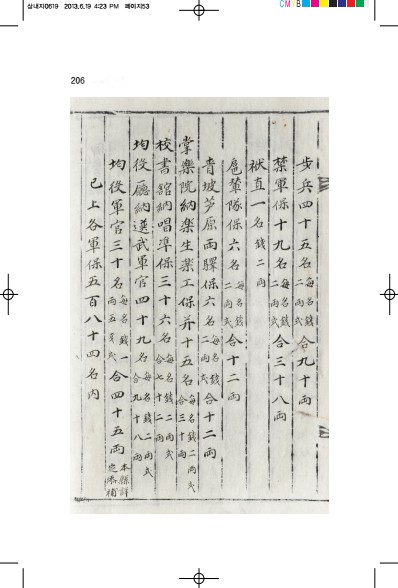 삼내지0619 2013.6.19 4:23 PM 페이지53
CM B
206
步兵四十五名 每名錢二兩式 合九十兩
禁軍保十九名 每名錢二兩式 合三十八兩
直一名 錢二兩
扈輦隊保六名 每名錢二兩式 合十二兩
靑坡芦原兩驛保六名 每名錢二兩式 合十二兩
掌樂院納樂生樂工保并十五名 每名錢二兩式 合三十兩
校書舘納唱準保三十六名 每名錢二兩式 合七十二兩
均役廳納選武軍官四十九名 每名錢二兩式 合九十八兩
均役軍官三十名 每名錢一兩五戔式 合四十五兩 本縣詳定添補
已上各軍保五百八十四名內